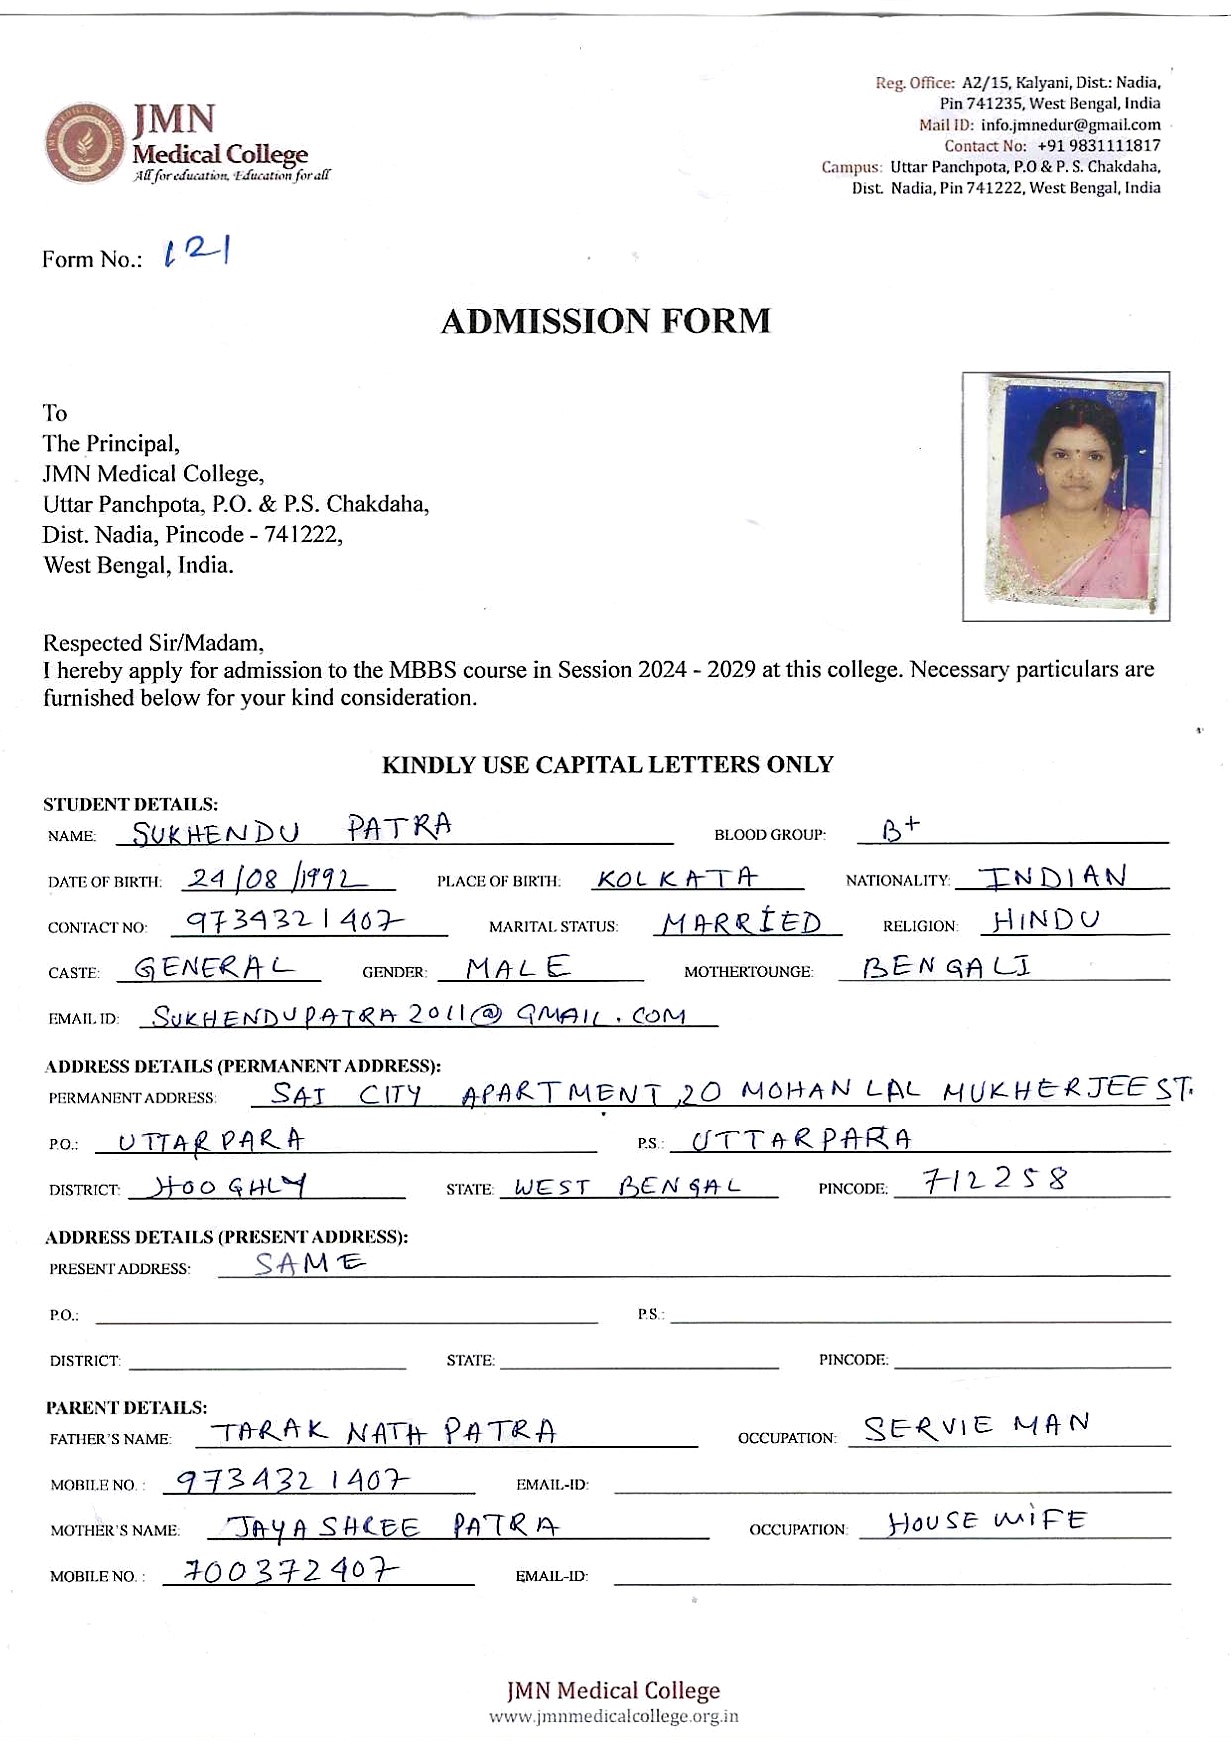 JMN
Medical College
All for education, Education for all
Reg. Office: A2/15, Kalyani, Dist.: Nadia,
Pin 741235, West Bengal, India
Mail ID: info.jmnedur@gmail.com
Contact No: +91 9831111817
Campus: Uttar Panchpota, P.O & P. S. Chakdaha,
Dist. Nadia, Pin 741222, West Bengal, India
Form No.: 121
ADMISSION FORM
To
The Principal,
JMN Medical College,
Uttar Panchpota, P.O. & P.S. Chakdaha,
Dist. Nadia, Pincode - 741222,
West Bengal, India.
Respected Sir/Madam,
I hereby apply for admission to the MBBS course in Session 2024 - 2029 at this college. Necessary particulars are
furnished below for your kind consideration.
KINDLY USE CAPITAL LETTERS ONLY
STUDENT DETAILS:
NAME: SUKHENDU PATRA BLOOD GROUP: B+
DATE OF BIRTH: 24/08/1992 PLACE OF BIRTH: KOLKATA NATIONALITY: INDIAN
CONTACT NO: 9734321407 MARITAL STATUS: MARRIED RELIGION: HINDU
CASTE: GENERAL GENDER: MALE MOTHERTOUNGE: BENGALI
EMAIL ID: SUKHENDUPATRA2011@GMAIL.COM
ADDRESS DETAILS (PERMANENT ADDRESS):
PERMANENT ADDRESS: SAI CITY APARTMENT, 20 MOHAN LAL MUKHERJEE ST.
P.O.: UTTARPARA P.S.: UTTARPARA
DISTRICT: HOOGHLY STATE: WEST BENGAL PINCODE: 712258
ADDRESS DETAILS (PRESENT ADDRESS):
PRESENT ADDRESS: SAME
P.O.: P.S.:
DISTRICT: STATE: PINCODE:
PARENT DETAILS:
FATHER'S NAME: TARAK NATH PATRA OCCUPATION: SERVIE MAN
MOBILE NO. : 9734321407 EMAIL-ID:
MOTHER'S NAME: JAYASHREE PATRA OCCUPATION: HOUSE WIFE
MOBILE NO. : 700372407 EMAIL-ID:
JMN Medical College
www.jmnmedicalcollege.org.in